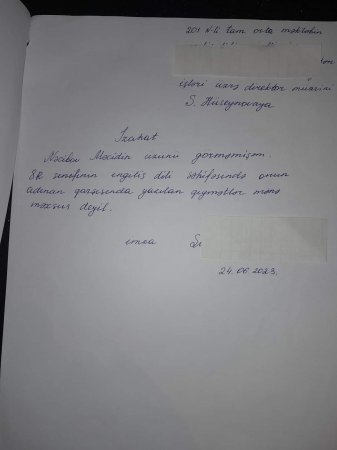 201 N-li tam orta məktəbin
işləri üzrə direktor müavini
S. Hüseynovaya
İzahat
Nəcibov Məcidin üzünü görməmişəm.
8 sinfinin ingilis dili səhifəsində onun
adının qarşısında yazılan qiymətlər mənə
məxsus deyil.
imza
24.06.2023.